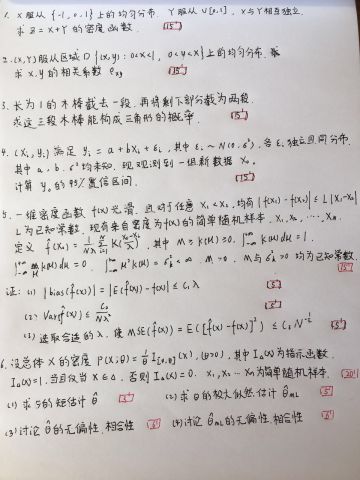 1. X服从 {-1,0,1} 上的均匀分布. Y服从 U[0,1], X与Y相互独立.
求 Z=X+Y 的密度函数. [15']
2. (X,Y)服从区域 D {(x,y): 0<x<1, 0<y<x} 上的均匀分布.
求 X,Y 的相关系数 ρxy [15']
3. 长为1的木棒截去一段, 再将剩下部分截为两段.
求这三段木棒能构成三角形的概率. [15']
4. (Xi,Yi) 满足 yi = a+bxi+εi, 其中 εi ~ N(0,σ²), 各εi独立且同分布.
其中 a, b, σ² 均未知. 现观测到一组新数据 X₀,
计算 y₀ 的 95% 置信区间. [15']
5. 一维密度函数 f(x) 光滑. 且对于任意 X₁<X₂, 均有 |f(X₁)-f(X₂)| ≤ L|X₁-X₂|
L为已知常数. 现有来自密度为f(x)的简单随机样本. X₁, X₂, ..., Xn.
K(μ)dμ = 1.
μK(μ)dμ = 0. M>0. 均为已知常数. [15']
证: (1) |bias(f̂(x))| = |E f̂(x) - f(x)| ≤ C₁λ [5']
(2) [5']
(3) 选取合适的λ, 使 MSE(f̂(x)) = E([f̂(x)-f(x)]²) [5']
6. 设总体X的密度 P(X;θ) = 1/θ I[0,θ](X), (θ>0), 其中 I_A(x)为指示函数.
I_A(x)=1, 当且仅当 X∈A, 否则 I_A(x)=0. X₁,X₂...Xn为简单随机样本. [20']
(1) 求θ的矩估计 θ̂ [5'] (2) 求θ的极大似然估计 θ̂ML [5']
(3) 讨论 θ̂ 的无偏性, 相合性 (4) 讨论 θ̂ML 的无偏性, 相合性